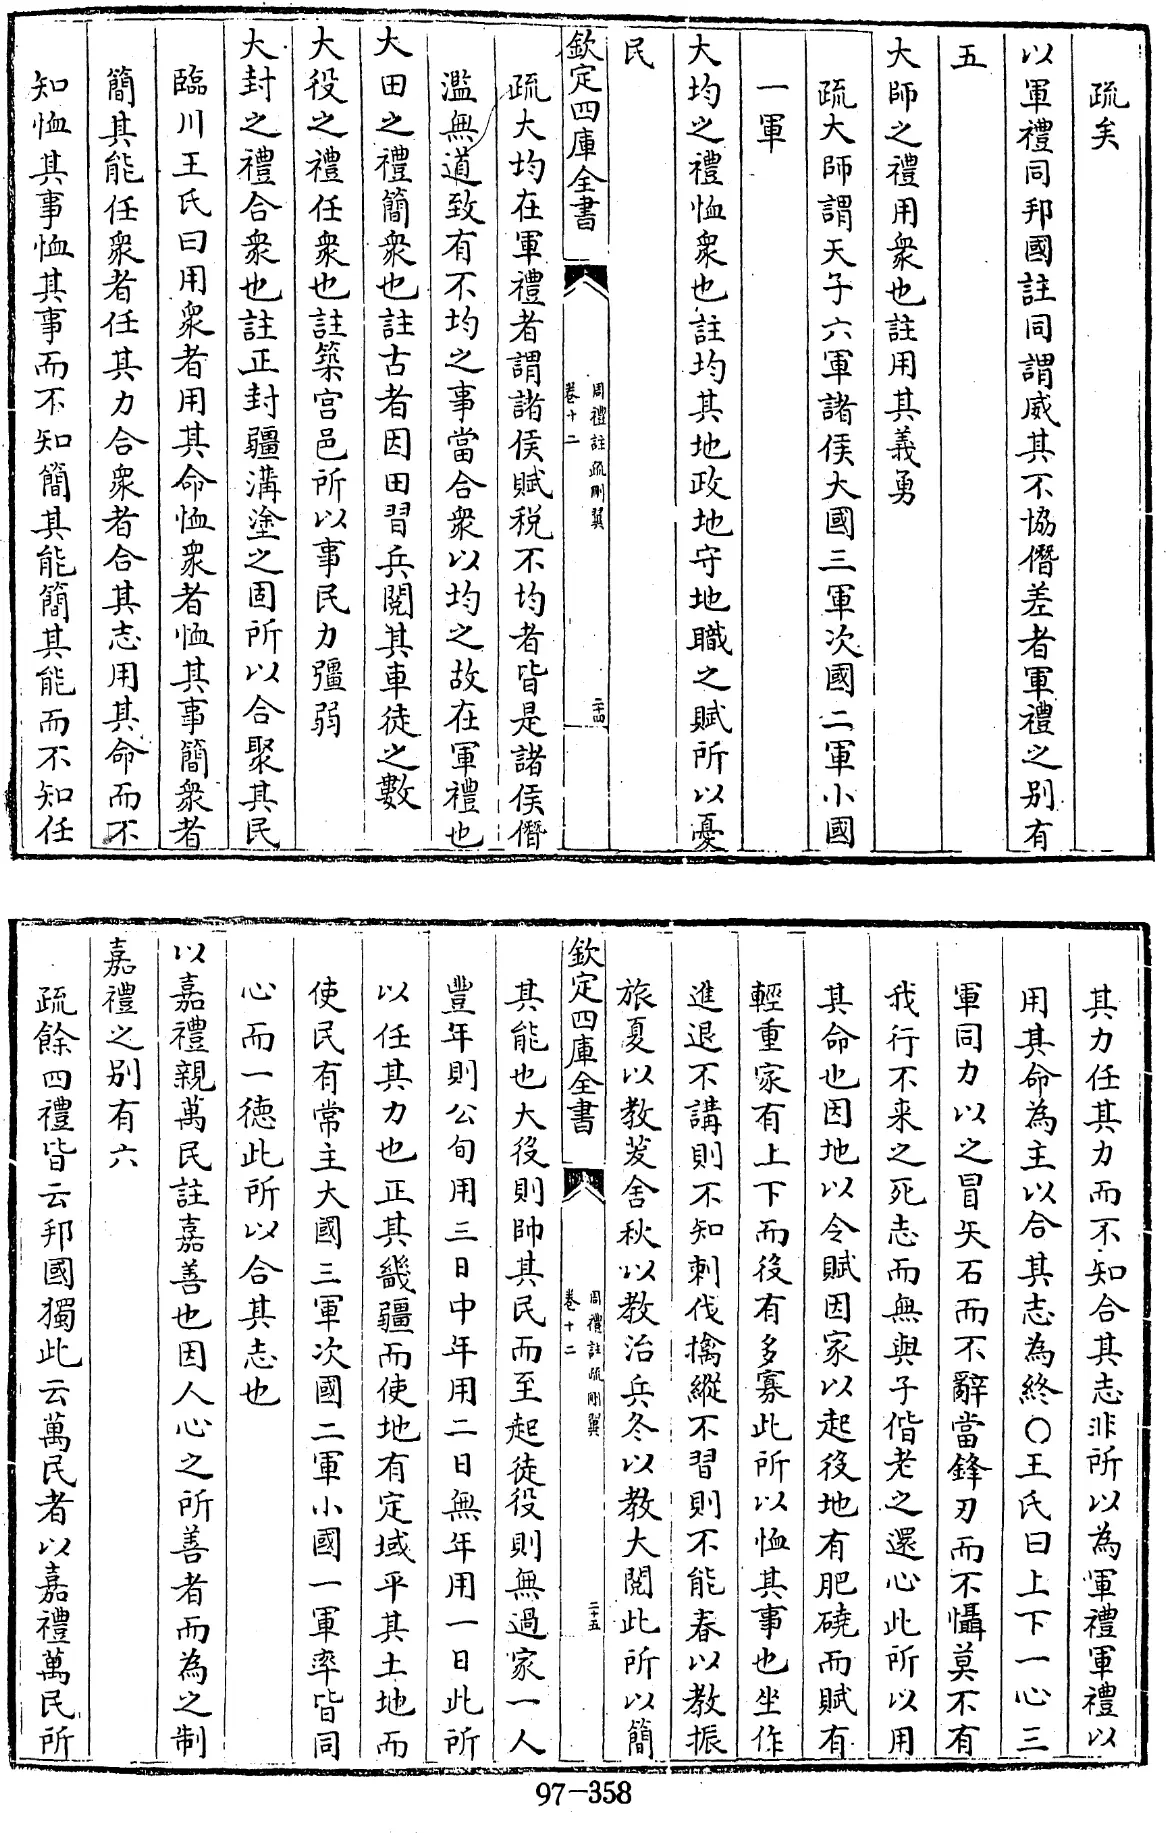 疏矣
以軍禮同邦國註同謂威其不協僭差者軍禮之别有
五
大師之禮用衆也註用其義勇
疏大師謂天子六軍諸侯大國三軍次國二軍小國
一軍
大均之禮恤衆也註均其地政地守地職之賦所以憂
民
欽定四庫全書
周禮註疏刪翼
卷十二
二十四
疏大均在軍禮者謂諸侯賦税不均者皆是諸侯僭
濫無道致有不均之事當合衆以均之故在軍禮也
大田之禮簡衆也註古者因田習兵閲其車徒之數
大役之禮任衆也註築宫邑所以事民力彊弱
大封之禮合衆也註正封疆溝塗之固所以合聚其民
臨川王氏曰用衆者用其命恤衆者恤其事簡衆者
簡其能任衆者任其力合衆者合其志用其命而不
知恤其事恤其事而不知簡其能簡其能而不知任
其力任其力而不知合其志非所以為軍禮軍禮以
用其命為主以合其志為終○王氏曰上下一心三
軍同力以之冒矢石而不辭當鋒刃而不懾莫不有
我行不来之死志而無與子偕老之還心此所以用
其命也因地以令賦因家以起役地有肥磽而賦有
輕重家有上下而役有多寡此所以恤其事也坐作
進退不講則不知刺伐擒縱不習則不能春以教振
旅夏以教茇舍秋以教治兵冬以教大閲此所以簡
欽定四庫全書
周禮註疏刪翼
卷十二
二十五
其能也大役則帥其民而至起徒役則無過家一人
豐年則公旬用三日中年用二日無年用一日此所
以任其力也正其畿疆而使地有定域平其土地而
使民有常主大國三軍次國二軍小國一軍率皆同
心而一徳此所以合其志也
以嘉禮親萬民註嘉善也因人心之所善者而為之制
嘉禮之别有六
疏餘四禮皆云邦國獨此云萬民者以嘉禮萬民所
97-358